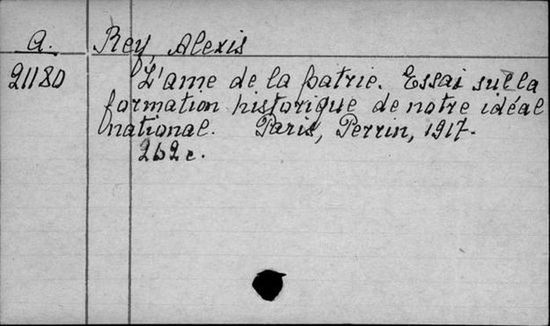 A. Rey, Alexis
21180 L'ame de la patrie. Essai sur la
formation historique de notre idéal
national. Paris, Perrin, 1917.
262 c.